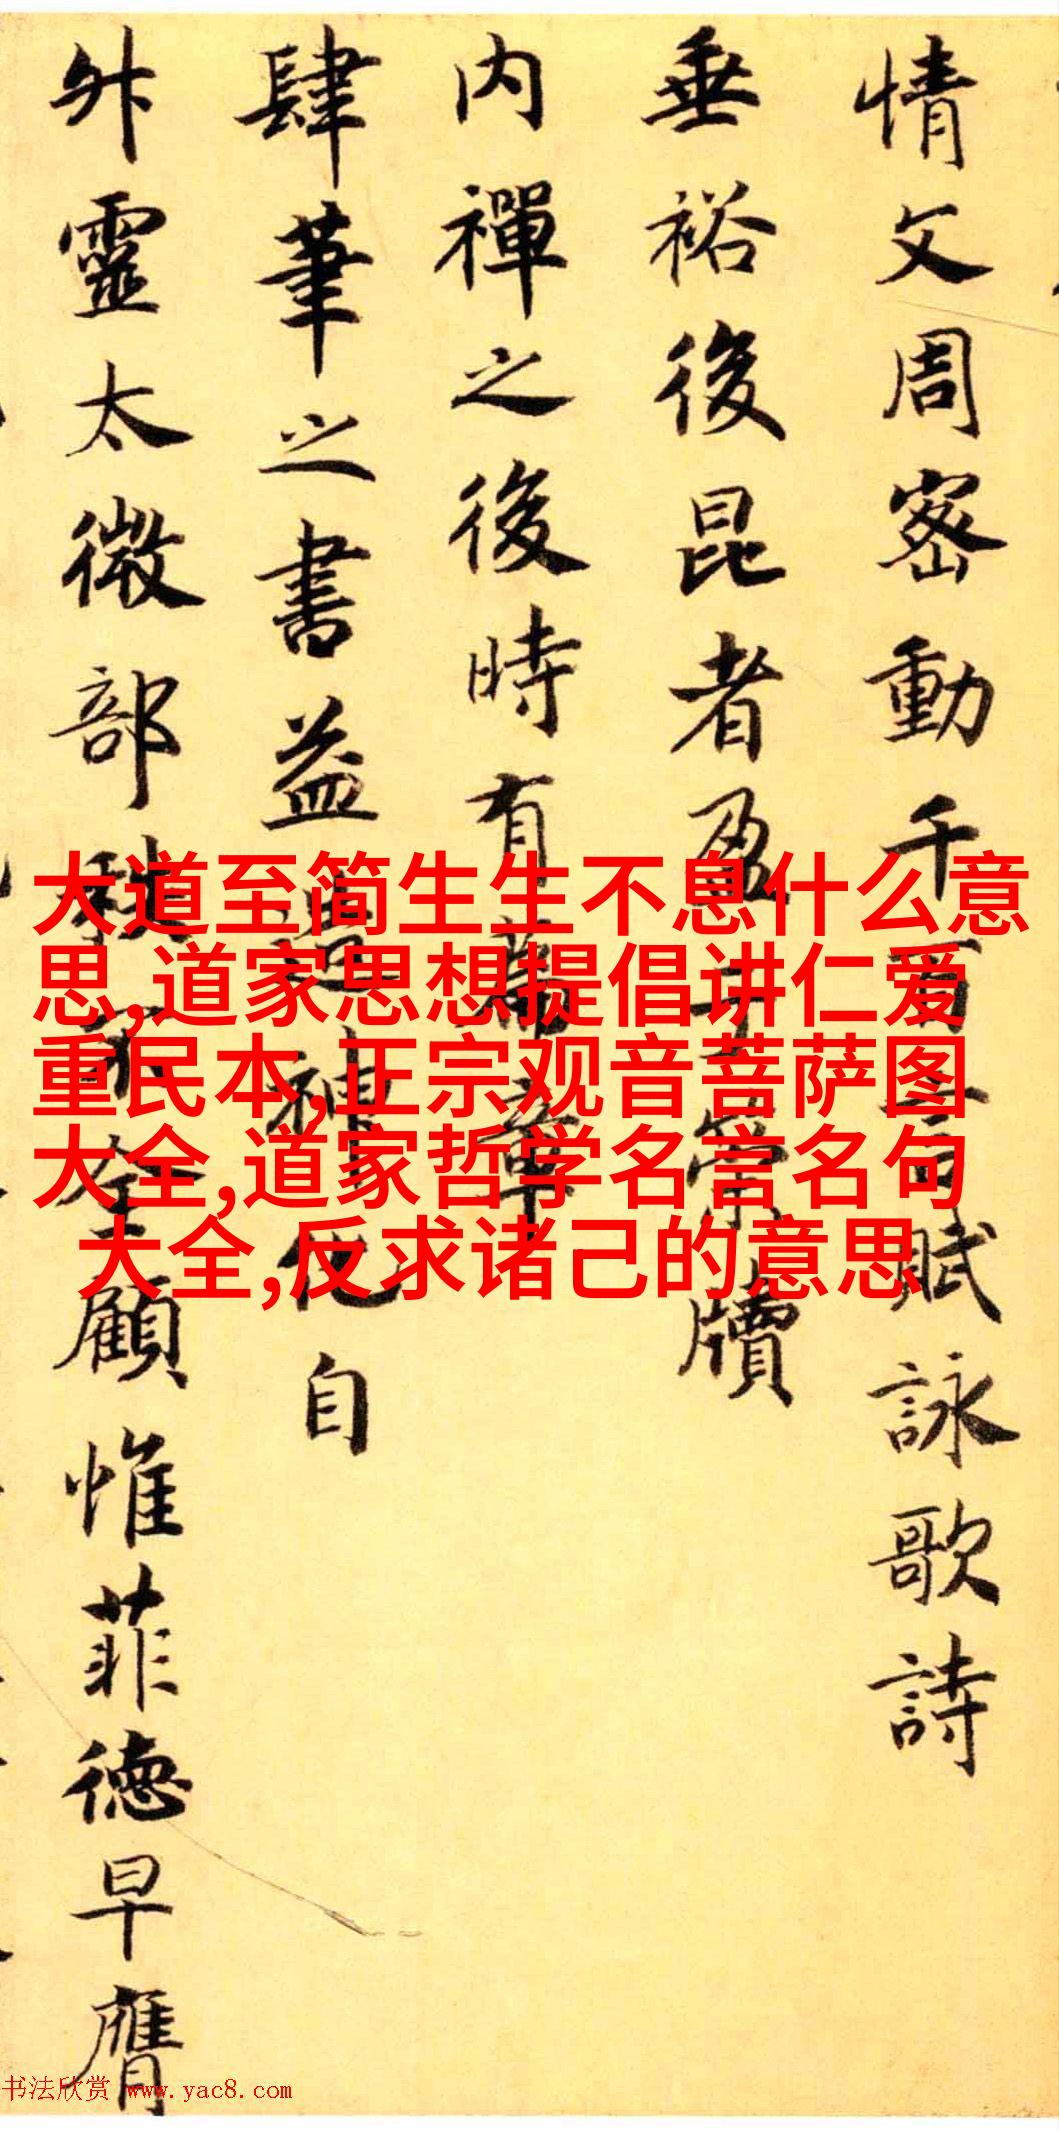 情文周密動千百言賦詠歌詩
垂裕後昆者盈于第牘
内禪之後時有萧章
肆筆之書益造神化自
升靈太微部秩宸奎顧惟菲德早膺
大道至简生生不息什么意
思,道家思想提倡讲仁爱
重民本,正宗观音菩萨图
大全,道家哲学名言名句
大全,反求诸己的意思
书法欣赏 www.yac8.com